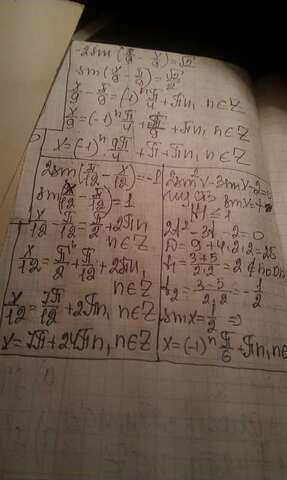 -2sin(π/9 - x/9) = √2
sin(x/9 - π/9) = √2/2
x/9 - π/9 = (-1)ⁿ π/4 + πn, n∈Z
x/9 = (-1)ⁿ π/4 + π/9 + πn, n∈Z
x = (-1)ⁿ 9π/4 + π + πn, n∈Z
2sin(π/12 - x/12) = -1
sin(x/12 - π/12) = 1
x/12 - π/12 = π/2 + 2πn
n∈Z
x/12 = π/2 + π/12 + 2πn,
n∈Z
x/12 = 7π/12 + 2πn, n∈Z
x = 7π + 24πn, n∈Z
2sin²x - 3sinx - 2 = 0
sinx = t
|t| ≤ 1
2t² - 3t - 2 = 0
D = 9 + 4·2·2 = 25
t₁ = (3+5)/(2·2) = 2
t₂ = (3-5)/(2·2) = -1/2
sinx = 1/2 ⇒
x = (-1)ⁿ π/6 + πn, n∈